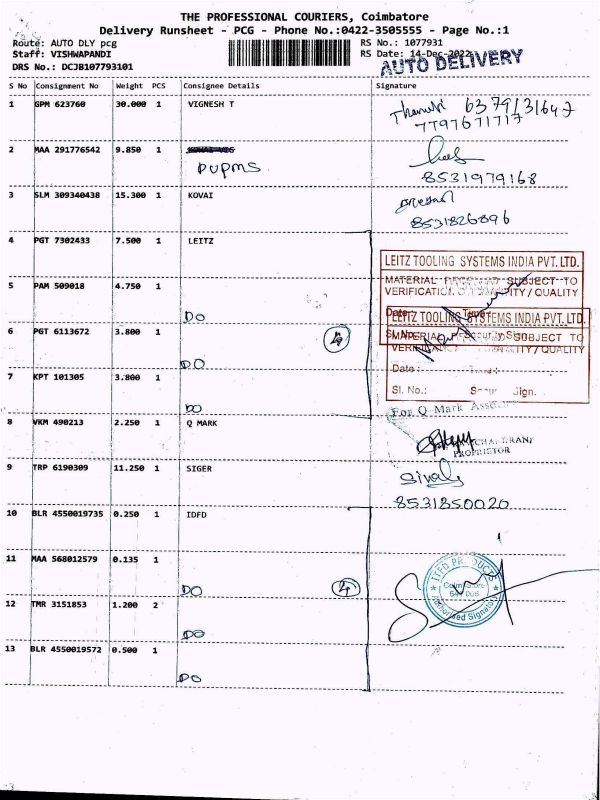 THE PROFESSIONAL COURIERS, Coimbatore
Delivery Runsheet - PCG - Phone No.:0422-3505555 - Page No.:1
Route: AUTO DLY pcg
Staff: VISHWAPANDI
DRS No.: DCJB107793101
RS No.: 1077931
RS Date: 14-Dec-2022
AUTO DELIVERY
S No Consignment No Weight PCS Consignee Details Signature
1 GPM 623760 30.000 1 VIGNESH T
6379131647
7797671717
2 MAA 291776542 9.850 1
DUPMS
8531979168
3 SLM 309340438 15.300 1 KOVAI
8531826896
4 PGT 7302433 7.500 1 LEITZ
LEITZ TOOLING SYSTEMS INDIA PVT. LTD.
MATERIAL SUBJECT TO
VERIFICATION QUANTITY / QUALITY
5 PAM 509018 4.750 1
DO
LEITZ TOOLING SYSTEMS INDIA PVT. LTD.
6 PGT 6113672 3.800 1
4
MATERIAL SUBJECT TO
QUANTITY / QUALITY
DO
Date :
7 KPT 101305 3.800 1
Sl. No.: Sign.
DO
For Q Mark
8 VKM 490213 2.250 1 Q MARK
PROPRIETOR
9 TRP 6190309 11.250 1 SIGER
8531850020
10 BLR 4550019735 0.250 1 IDFD
11 MAA 568012579 0.135 1
DO 4
PRODUCTS
Coimbatore
Authorised Signatory
12 TMR 3151853 1.200 2
DO
13 BLR 4550019572 0.500 1
DO